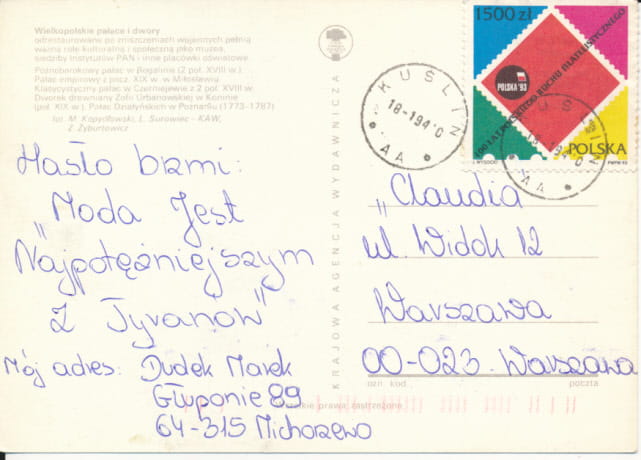 Wielkopolskie pałace i dwory
odrestaurowane po zniszczeniach wojennych pełnią
ważną rolę kulturalną i społeczną jako muzea,
siedziby instytutów PAN i inne placówki oświatowe.
Poznoborokowy pałac w Rogalinie (2 poł. XVIII w.)
Pałac empirowy z pocz. XIX w. w Miłosławiu
Klasycystyczny pałac w Czerniejewie z 2 poł. XVIII w.
Dworek drewniany Zofii Urbanowskiej w Koninie
(poł. XIX w.). Pałac Działyńskich w Poznańiu (1773-1787)
fot. M. Kopydłowski, L. Surowiec - KAW,
Z. Żyburtowicz
Hasło brzmi:
„Moda Jest
Najpotężniejszym
Z Tyranów"
Mój adres: Dudek Marek
Głuponie 89
64-315 Michorzewo
KRAJOWA AGENCJA WYDAWNICZA
1500 zł
100 LAT POLSKIEGO RUCHU FILATELISTYCZNEGO
POLSKA '93
POLSKA
KUŚLIN
18-1.94 *0
AA
„Claudia
ul. Widok 12
Warszawa
00-023 Warszawa
ozn. kod.
poczta
wszelkie prawa zastrzeżone